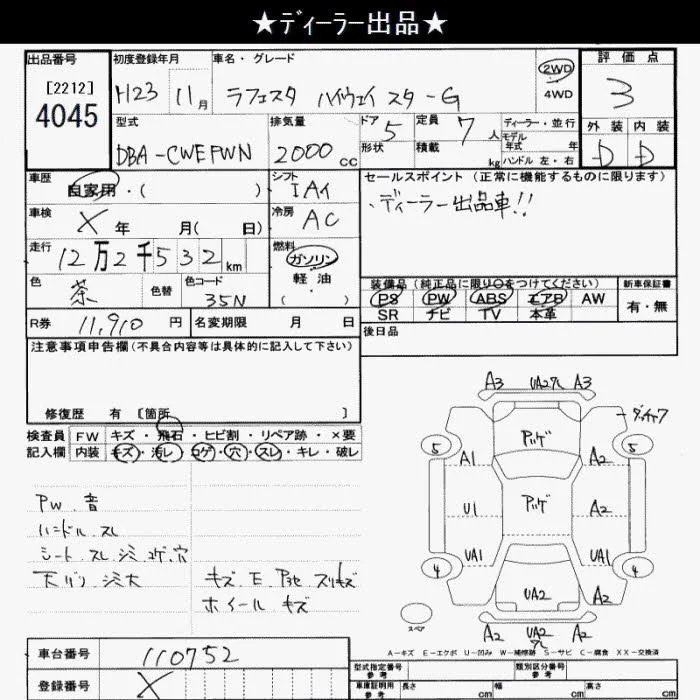 ★ディーラー出品★
出品番号
[2212]
4045
初度登録年月
H23 11月
車名・グレード
ラフェスタ ハイウェイスターG
2WD
4WD
評価点
3
外装 内装
D D
型式
DBA-CWEFWN
排気量
2000cc
ドア 5
形状
定員 7人
積載 kg
ディーラー・並行
モデル
年式 年
ハンドル 左・右
車歴
自家用・( )
シフト
IAT
セールスポイント (正常に機能するものに限ります)
、ディーラー出品車!!
車検
X年 月( 日)
冷房
AC
走行
12万2千532km
燃料
ガソリン
軽油
( )
色
茶
色替
色コード
35N
装備品(純正品に限り○をつけてください)
PS PW ABS エアB AW
SR ナビ TV 本革
新車保証書
有・無
R券 11,910円
名変期限 月 日
後日品
注意事項申告欄(不具合内容等は具体的に記入して下さい)
修復歴 有 [箇所 ]
検査員
記入欄
FW キズ・飛石・ヒビ割・リペア跡・×要
内装 キズ・汚レ・コゲ・穴・スレ・キレ・破レ
PW 音
ハンドル スレ
シート スレ シミ コゲ 穴
天バリ シミ大
キズ E
ホイール キズ
A3 UA2 A3
5 5
A1 A2
U1 A2
UA1 UA1
4 4
UA2 A2
A2 UA2 A2
スペア
A-キズ E-エクボ U-凹み W-補修跡 S-サビ C-腐食 XX-交換済
車台番号 110752
登録番号 X
型式指定番号
参考
類別区分番号
参考
車庫証明用
参考
長さ cm 幅 cm 高さ cm